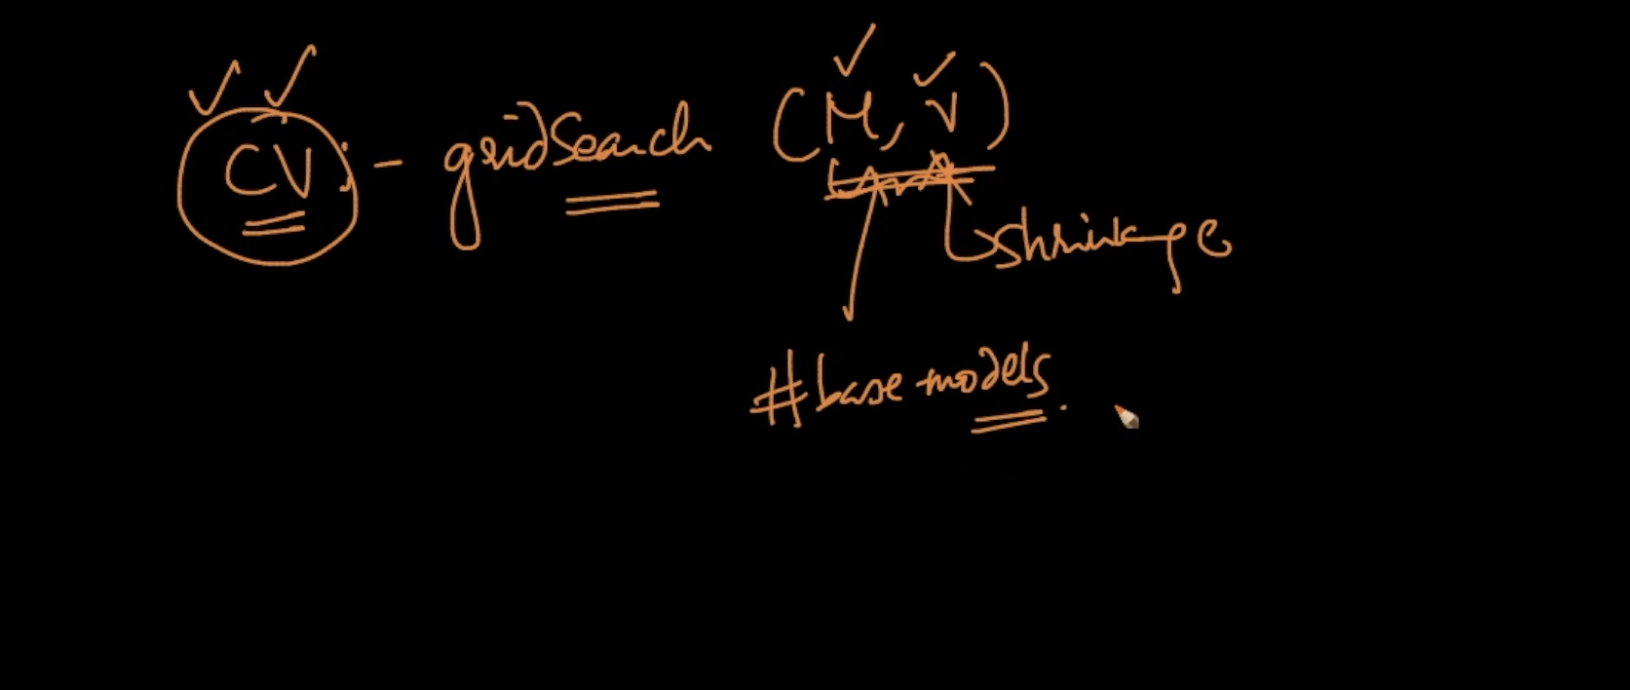 CV; - gridsearch (M, ν)
shrinkage
#base models.